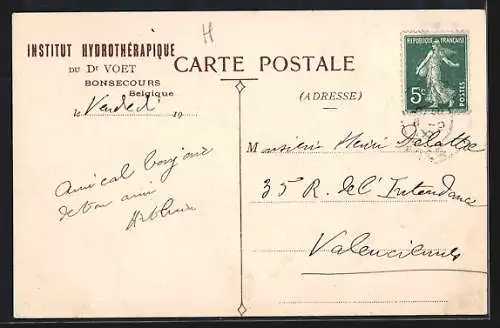 H
INSTITUT HYDROTHÉRAPIQUE
DU Dr VOET
BONSECOURS
Belgique
Vendredi 19
CARTE POSTALE
(ADRESSE)
REPUBLIQUE FRANÇAISE
5c
POSTES
Amical bonjour
de ton ami
Monsieur Henri Delattre
35 R. de l'Intendance
Valenciennes